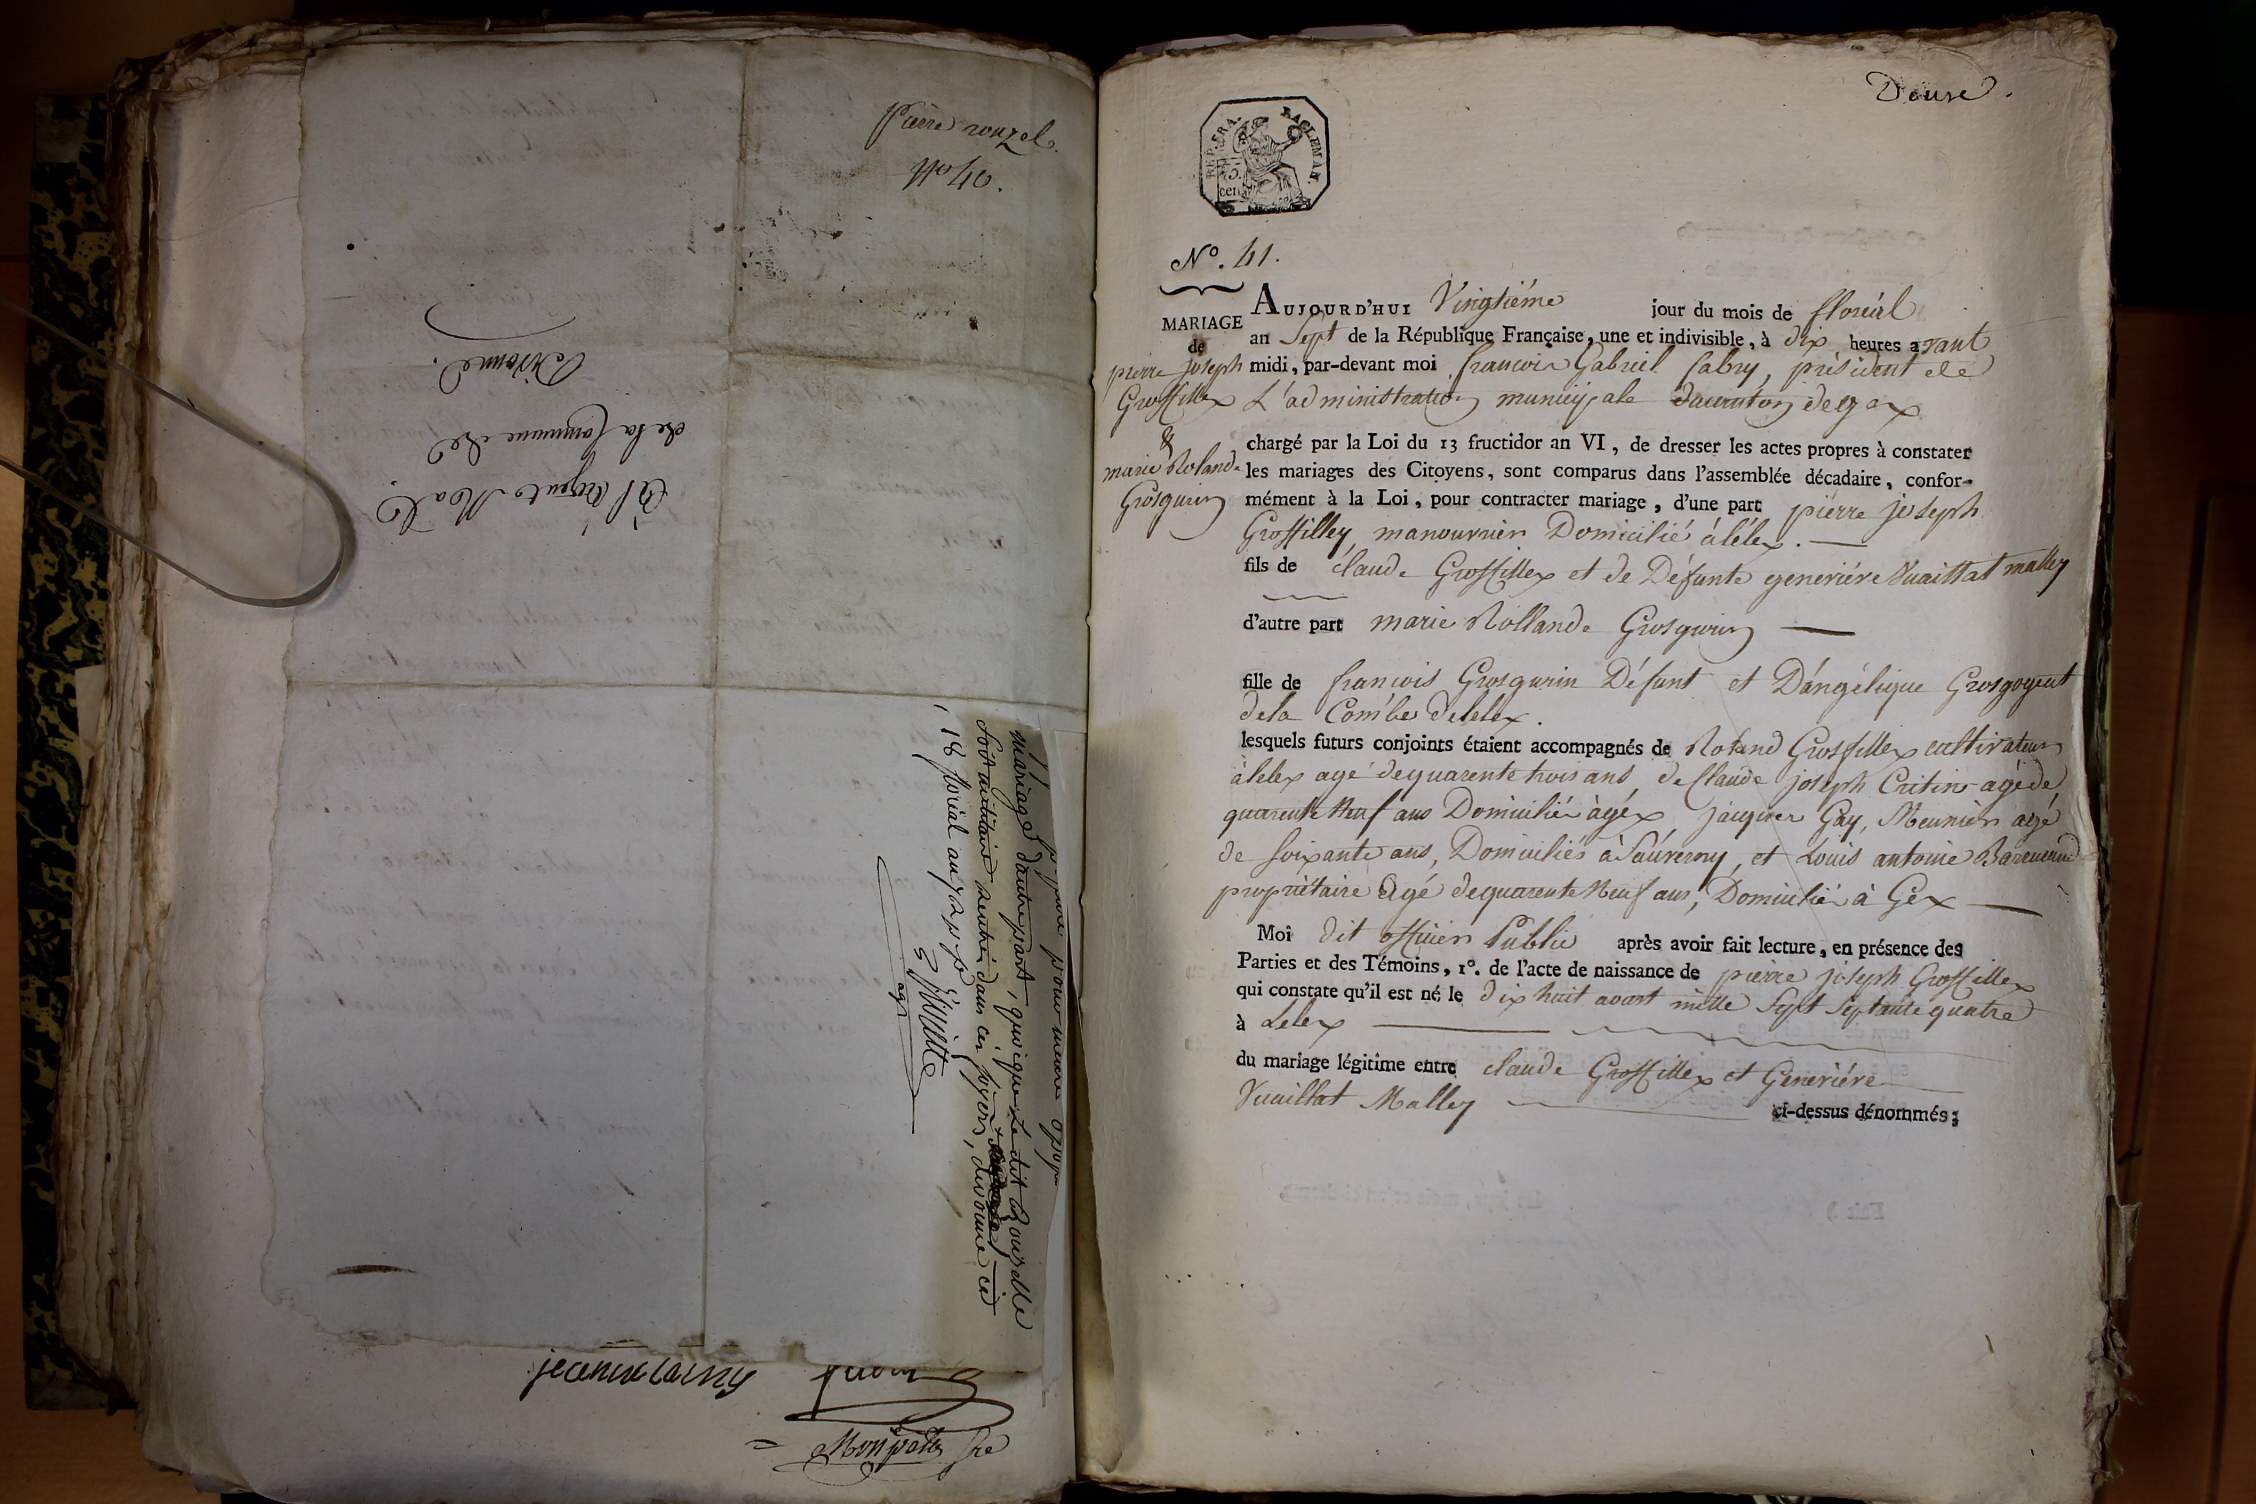 pierre rouzel.
No 40.
à l'agent N.al
de la Commune de
Divonne.
pour
mariage d'autre part, quoique le dit Rouzelle
soit militaire rentré dans ces foyers, divonne ce
18 floréal an 7
agt
Monpela
Douse.
REP. FRA. RAGLEMAN.
No. 41.
MARIAGE
de
pierre joseph
Grosfillex
&
marie Rolande
Grosgurin
AUJOURD'HUI Vingtiéme jour du mois de floréal
an Sept de la République Française, une et indivisible, à dix heures avant
midi, par-devant moi francois Gabriel fabry, président de
L'administration municipale du canton de gex
chargé par la Loi du 13 fructidor an VI, de dresser les actes propres à constater
les mariages des Citoyens, sont comparus dans l'assemblée décadaire, confor-
mément à la Loi, pour contracter mariage, d'une part pierre joseph
Grosfilley, manouvrier Domicilié à lélex.
fils de Claude Grosfillex et de Défunte geneviére Vuaillat malley
d'autre part marie Rollande Grosgurin
fille de francois Grosgurin Défunt et D'angélique Grosgogeat
de la Combe de lelex.
lesquels futurs conjoints étaient accompagnés de Roland Grosfillex cultivateur
à lelex agé de quarente trois ans, de Claude joseph Critin agé de
quarente Neuf ans Domicilié à géx jacques Gay, Meunier agé
de soixante ans, Domiciliés à Sauverny, et Louis antoine
propriètaire agé de quarente Neuf ans, Domicilié à Géx
Moi dit officier Public après avoir fait lecture, en présence des
Parties et des Témoins, 1°. de l'acte de naissance de pierre joseph Grosfillex
qui constate qu'il est né le dix huit avost mille Sept Septante quatre
à Lelex
du mariage légitime entre claude Grosfillex et Geneviére
Vuaillat Malley ci-dessus dénommés;